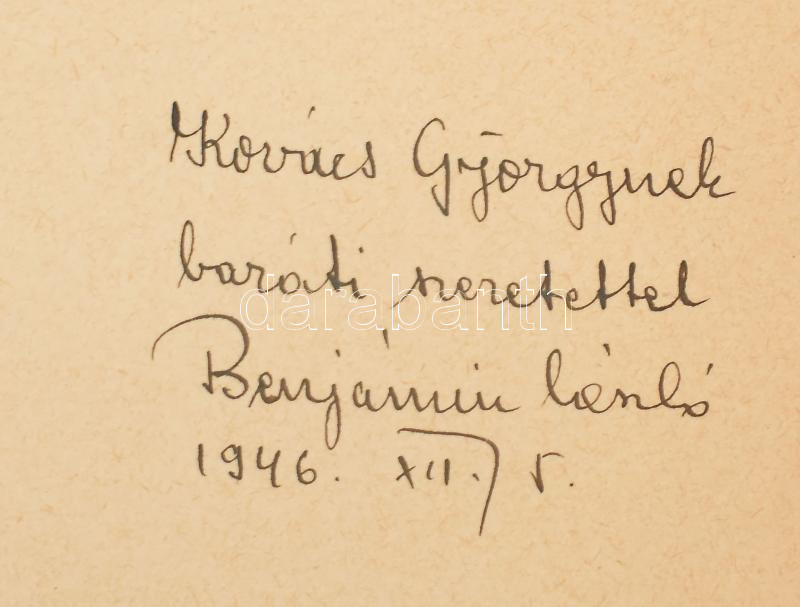 Kovács Györgynek
baráti szeretettel
darabanth
Benjámin László
1946. XII. 5.